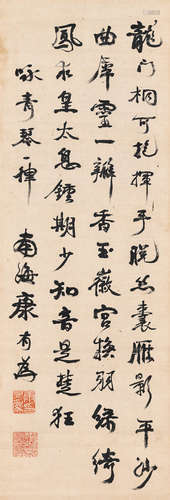 龍門桐可抱揮手脫絲囊雁影平沙
曲靈一瓣香玉徽宮換羽綠綺
鳳求皇太息鍾期少知音是楚狂
咏青琴一
南海康有為